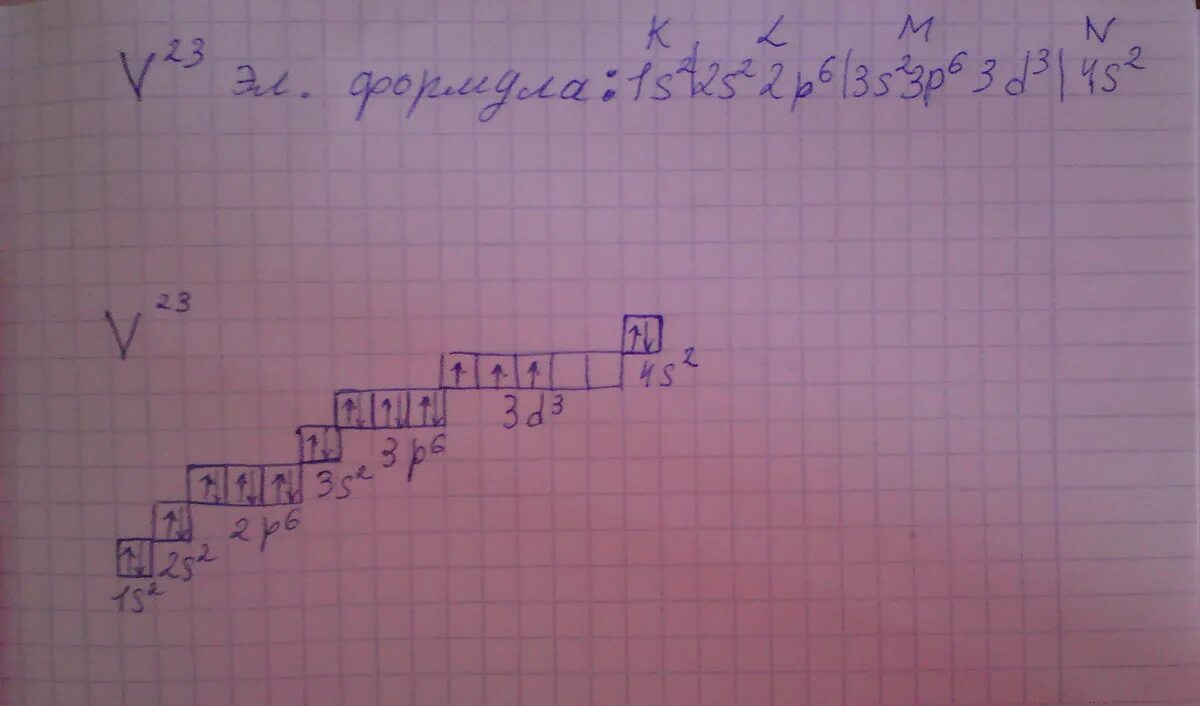 K L M N
V²³ эл. формула: 1s²|2s² 2p⁶|3s²3p⁶ 3d³|4s²
V²³
4s²
3d³
3p⁶
3s²
2p⁶
2s²
1s²